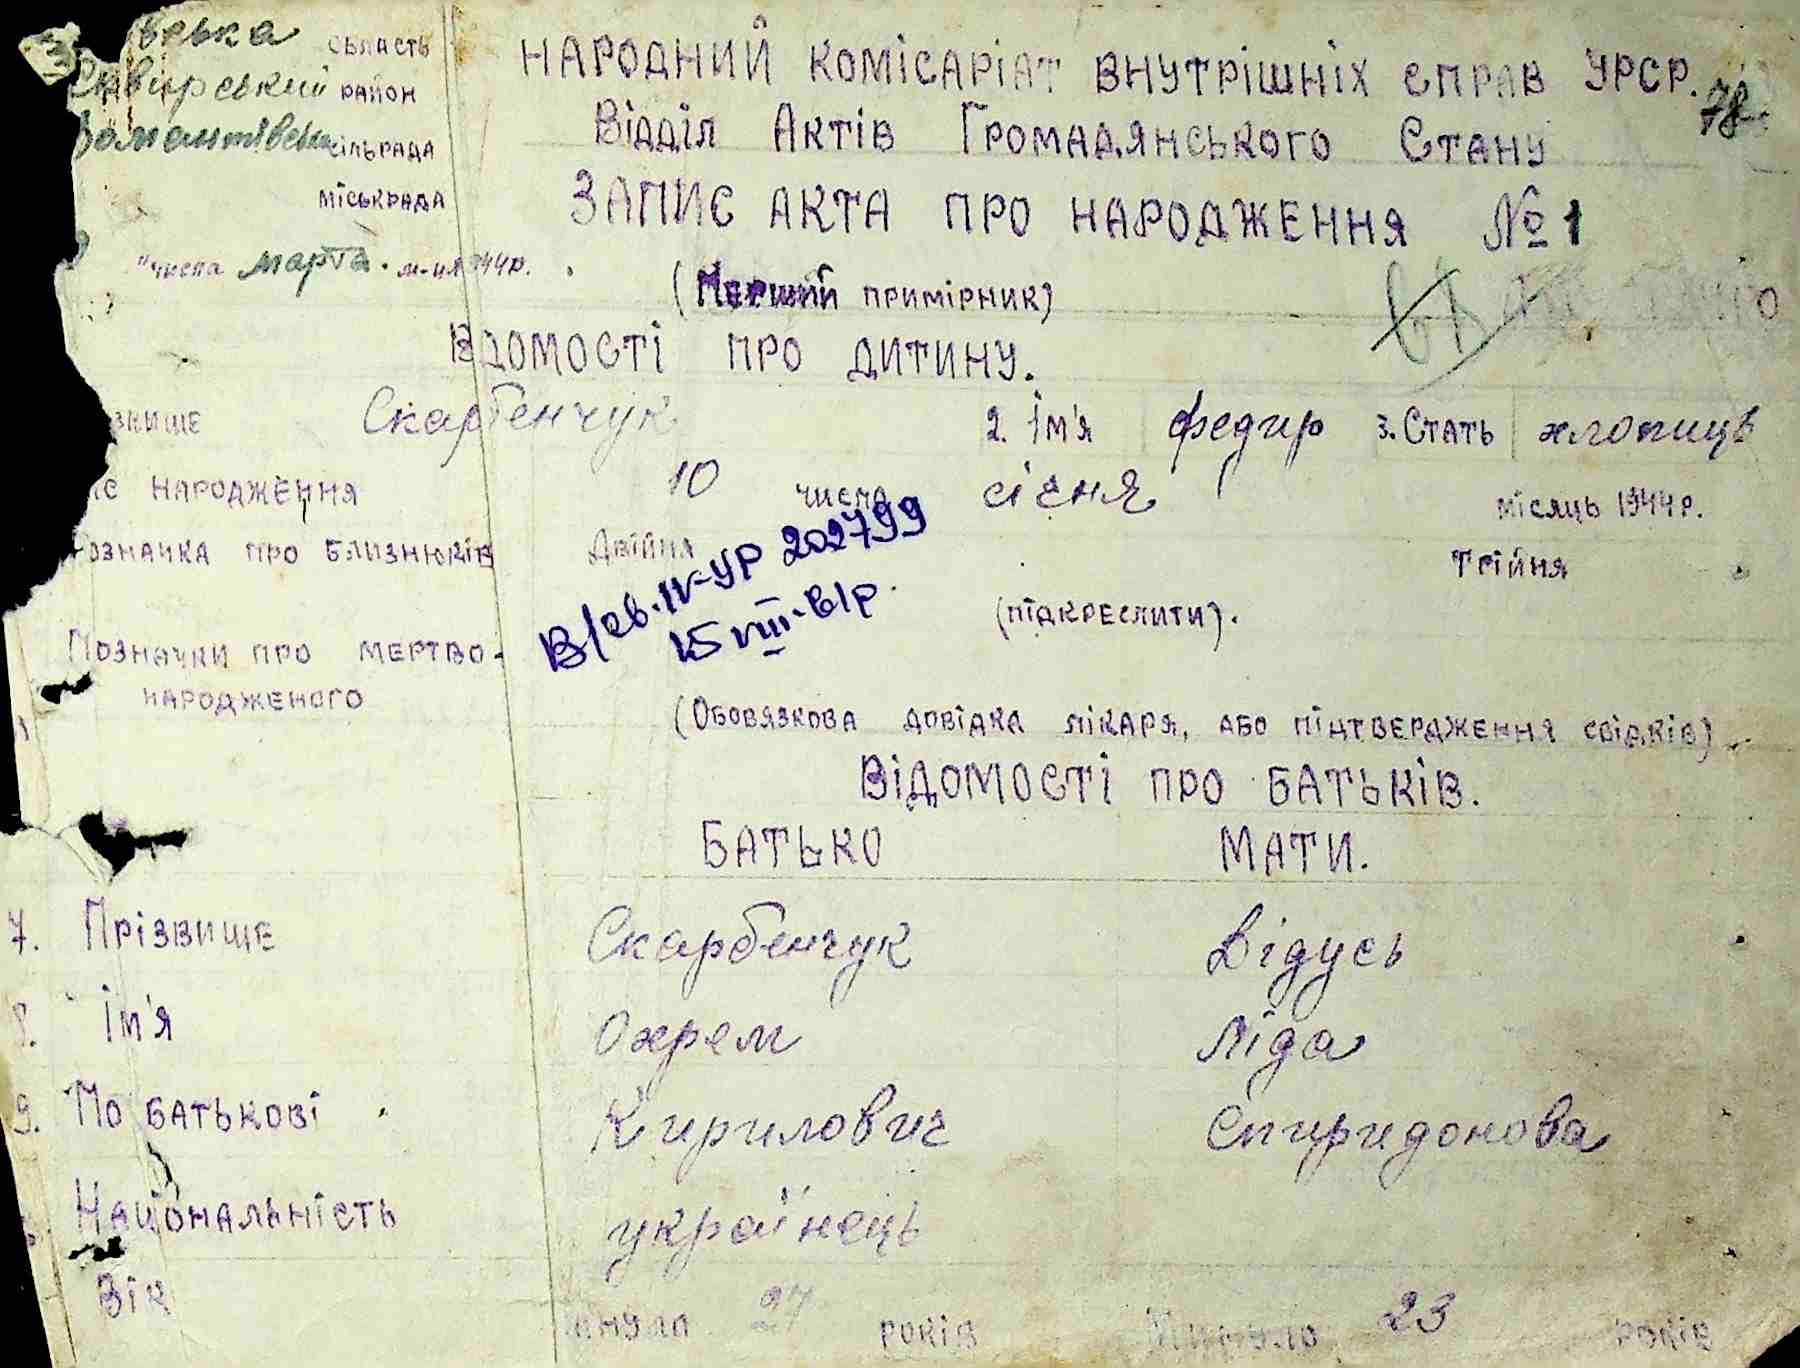 ська область
Сквирський район
сільрада
міськрада
НАРОДНИЙ КОМІСАРІАТ ВНУТРІШНІХ СПРАВ УРСР.
78
Відділ Актів Громадянського Стану
ЗАПИС АКТА ПРО НАРОДЖЕННЯ № 1
"числа марта. м-ця 1944р.
(Перший примірник)
Вдомості про дитину.
звище Скарбенчук 2. Ім'я Федир 3. Стать хлопиць
ас народження 10 числа січня місяць 1944р.
Позначка про близнюків Двійня Трійня
(підкреслити).
В/св. IV-УР 202799
15 VIII
Позначки про мертво-
народженого
(Обовязкова довідка лікаря, або підтвердження свідків)
Відомості про батьків.
БАТЬКО МАТИ.
7. Прізвище Скарбенчук Відусь
8. Ім'я Охрем Ліда
9. По батькові Кирилович Спиридонова
Національність українець
Вік минуло 27 років Минуло 23 років